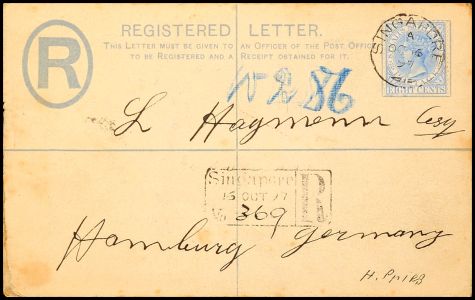 REGISTERED LETTER.
R
THIS LETTER MUST BE GIVEN TO AN OFFICER OF THE POST OFFICE
TO BE REGISTERED AND A RECEIPT OBTAINED FOR IT.
SINGAPORE
A
OC 16
97
EIGHT CENTS
L Hagmenn Esq
Singapore
15 OCT 97
No 369
R
Hamburg Germany